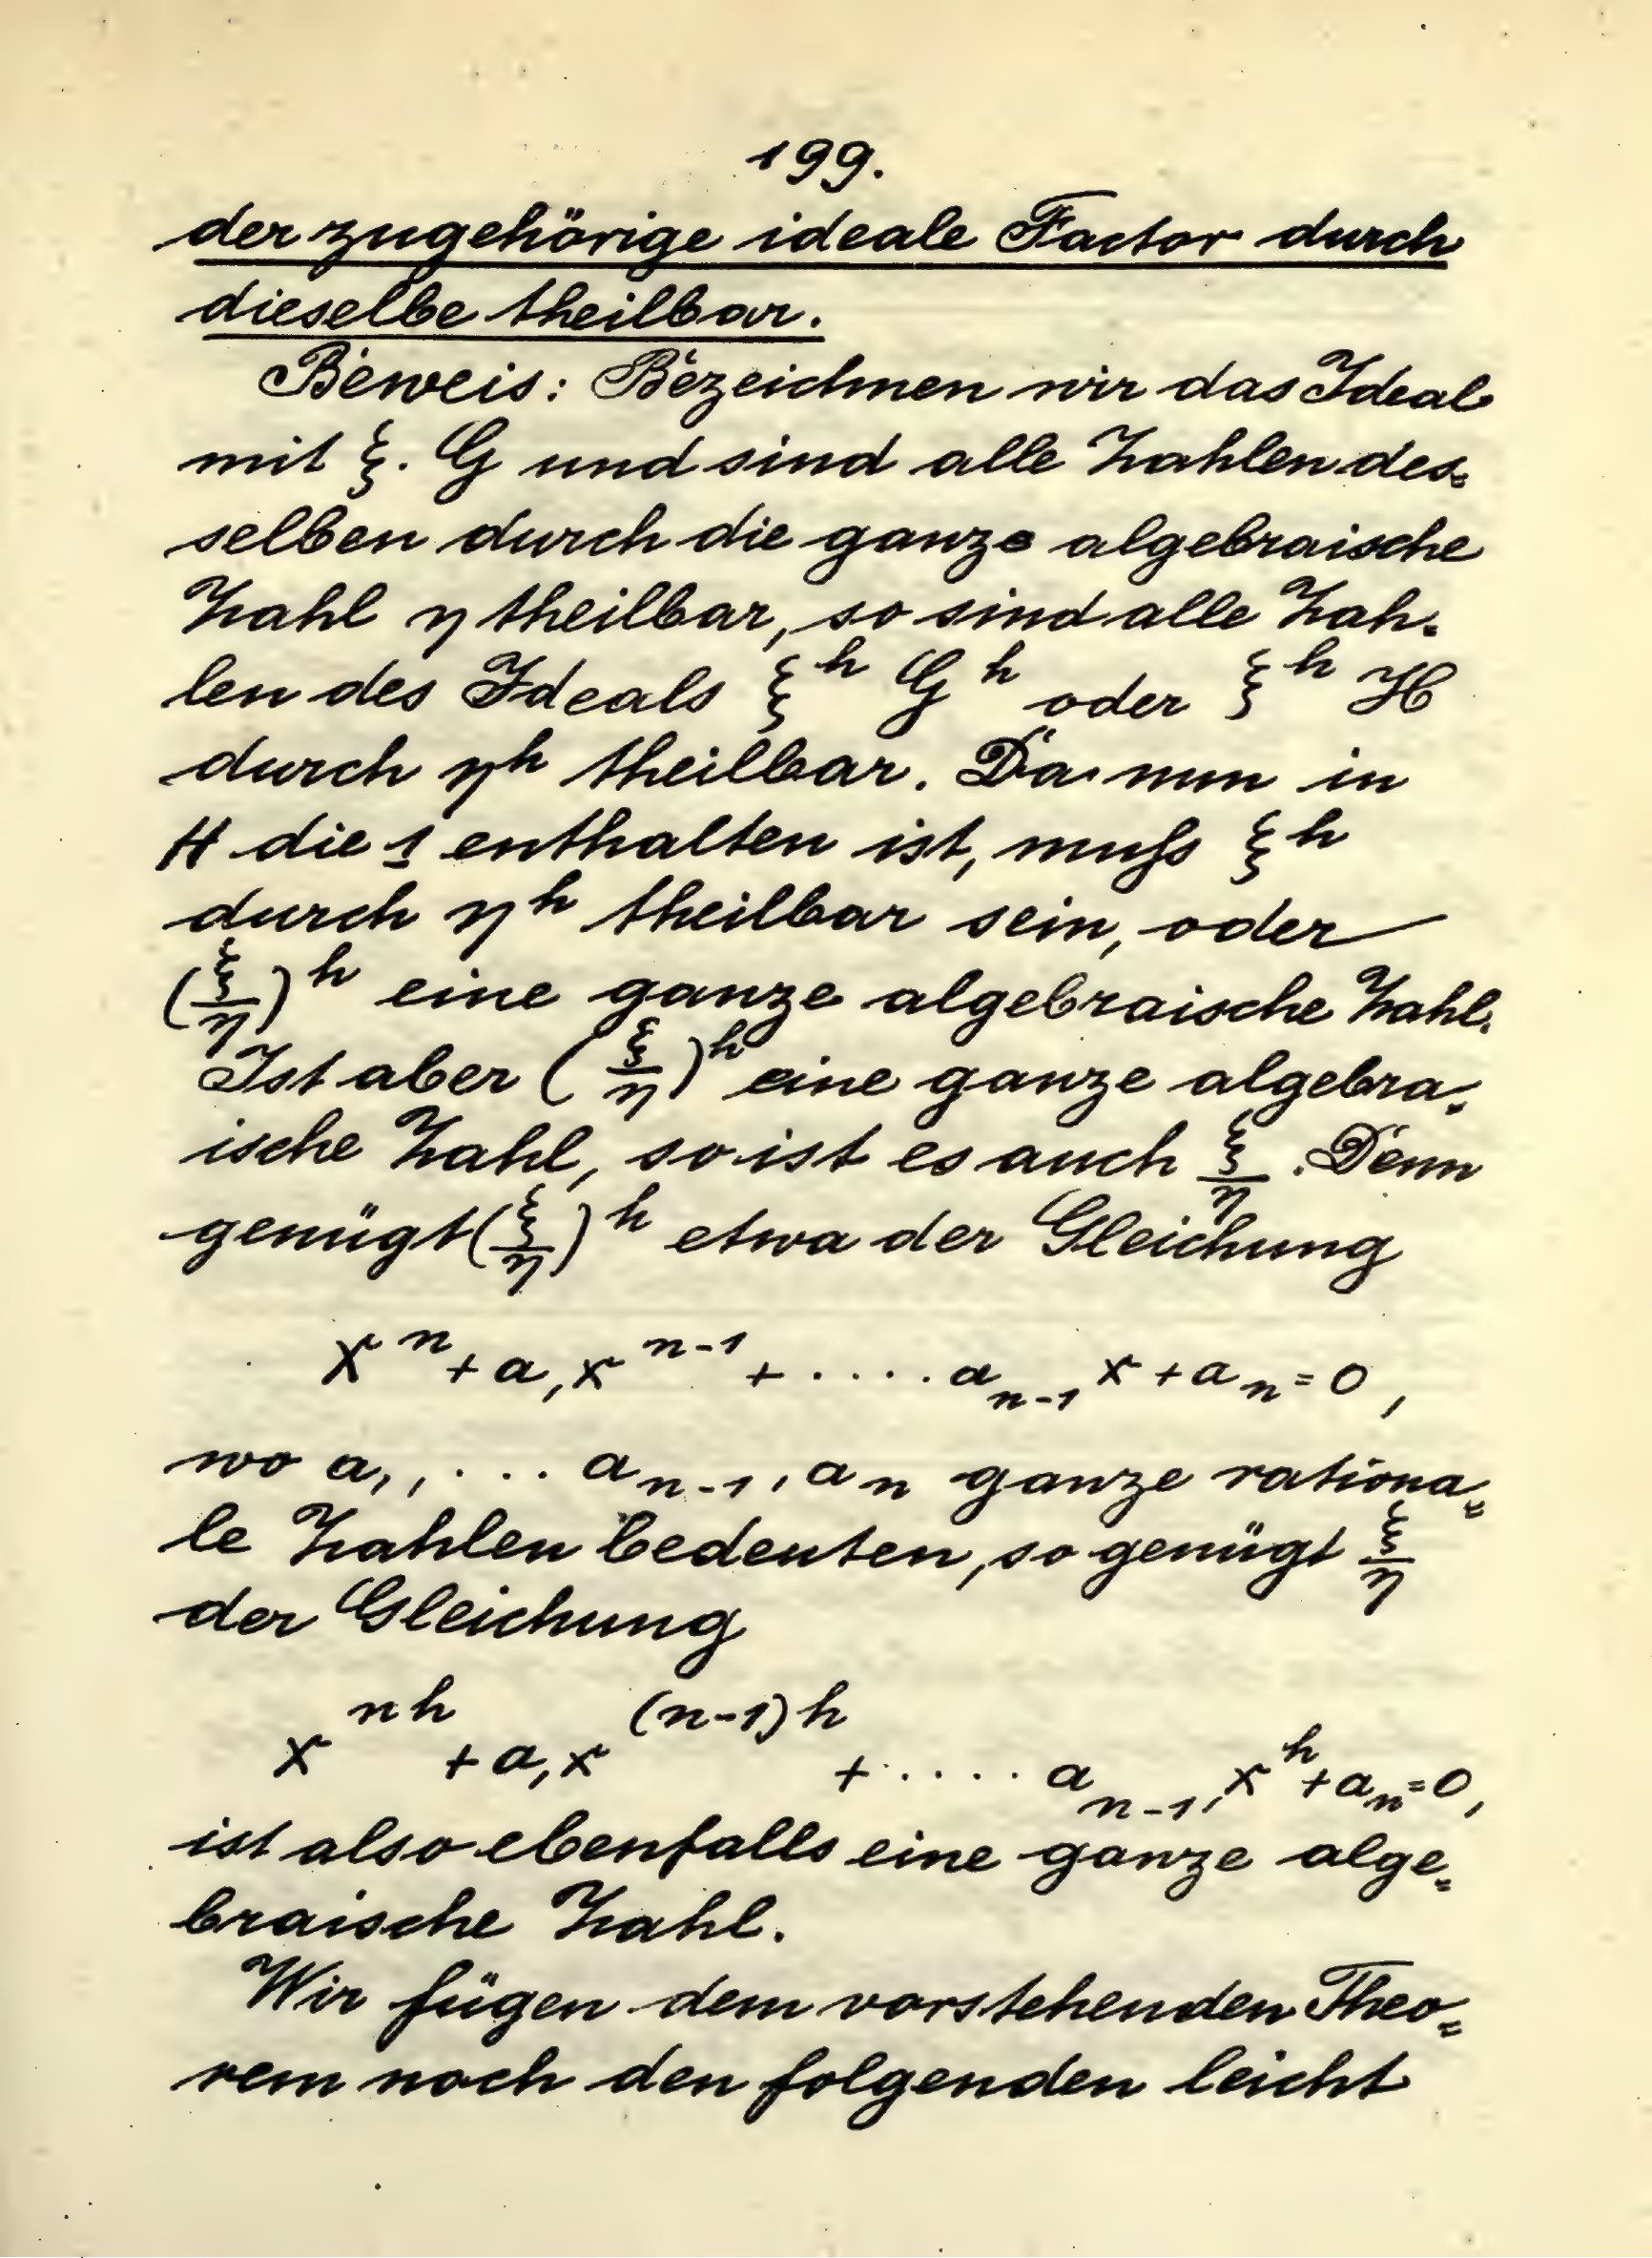 199.
der zugehörige ideale Factor durch
dieselbe theilbar.
Beweis: Bezeichnen wir das Ideal
mit ξ. G und sind alle Zahlen des=
selben durch die ganze algebraische
Zahl η theilbar, so sind alle Zah=
len des Ideals ξ^h G^h oder ξ^h H
durch η^h theilbar. Da nun in
H die 1 enthalten ist, muſs ξ^h
durch η^h theilbar sein, oder
(ξ/η)^h eine ganze algebraische Zahl.
Ist aber (ξ/η)^h eine ganze algebra=
ische Zahl, so ist es auch ξ/η. Denn
genügt (ξ/η)^h etwa der Gleichung
x^n + a_1 x^{n-1} + ..... a_{n-1} x + a_n = 0,
wo a_1, ... a_{n-1}, a_n ganze rationa=
le Zahlen bedeuten, so genügt ξ/η
der Gleichung
x^{nh} + a_1 x^{(n-1)h} + ..... a_{n-1} x^h + a_n = 0,
ist also ebenfalls eine ganze alge=
braische Zahl.
Wir fügen dem vorstehenden Theo=
rem noch den folgenden leicht